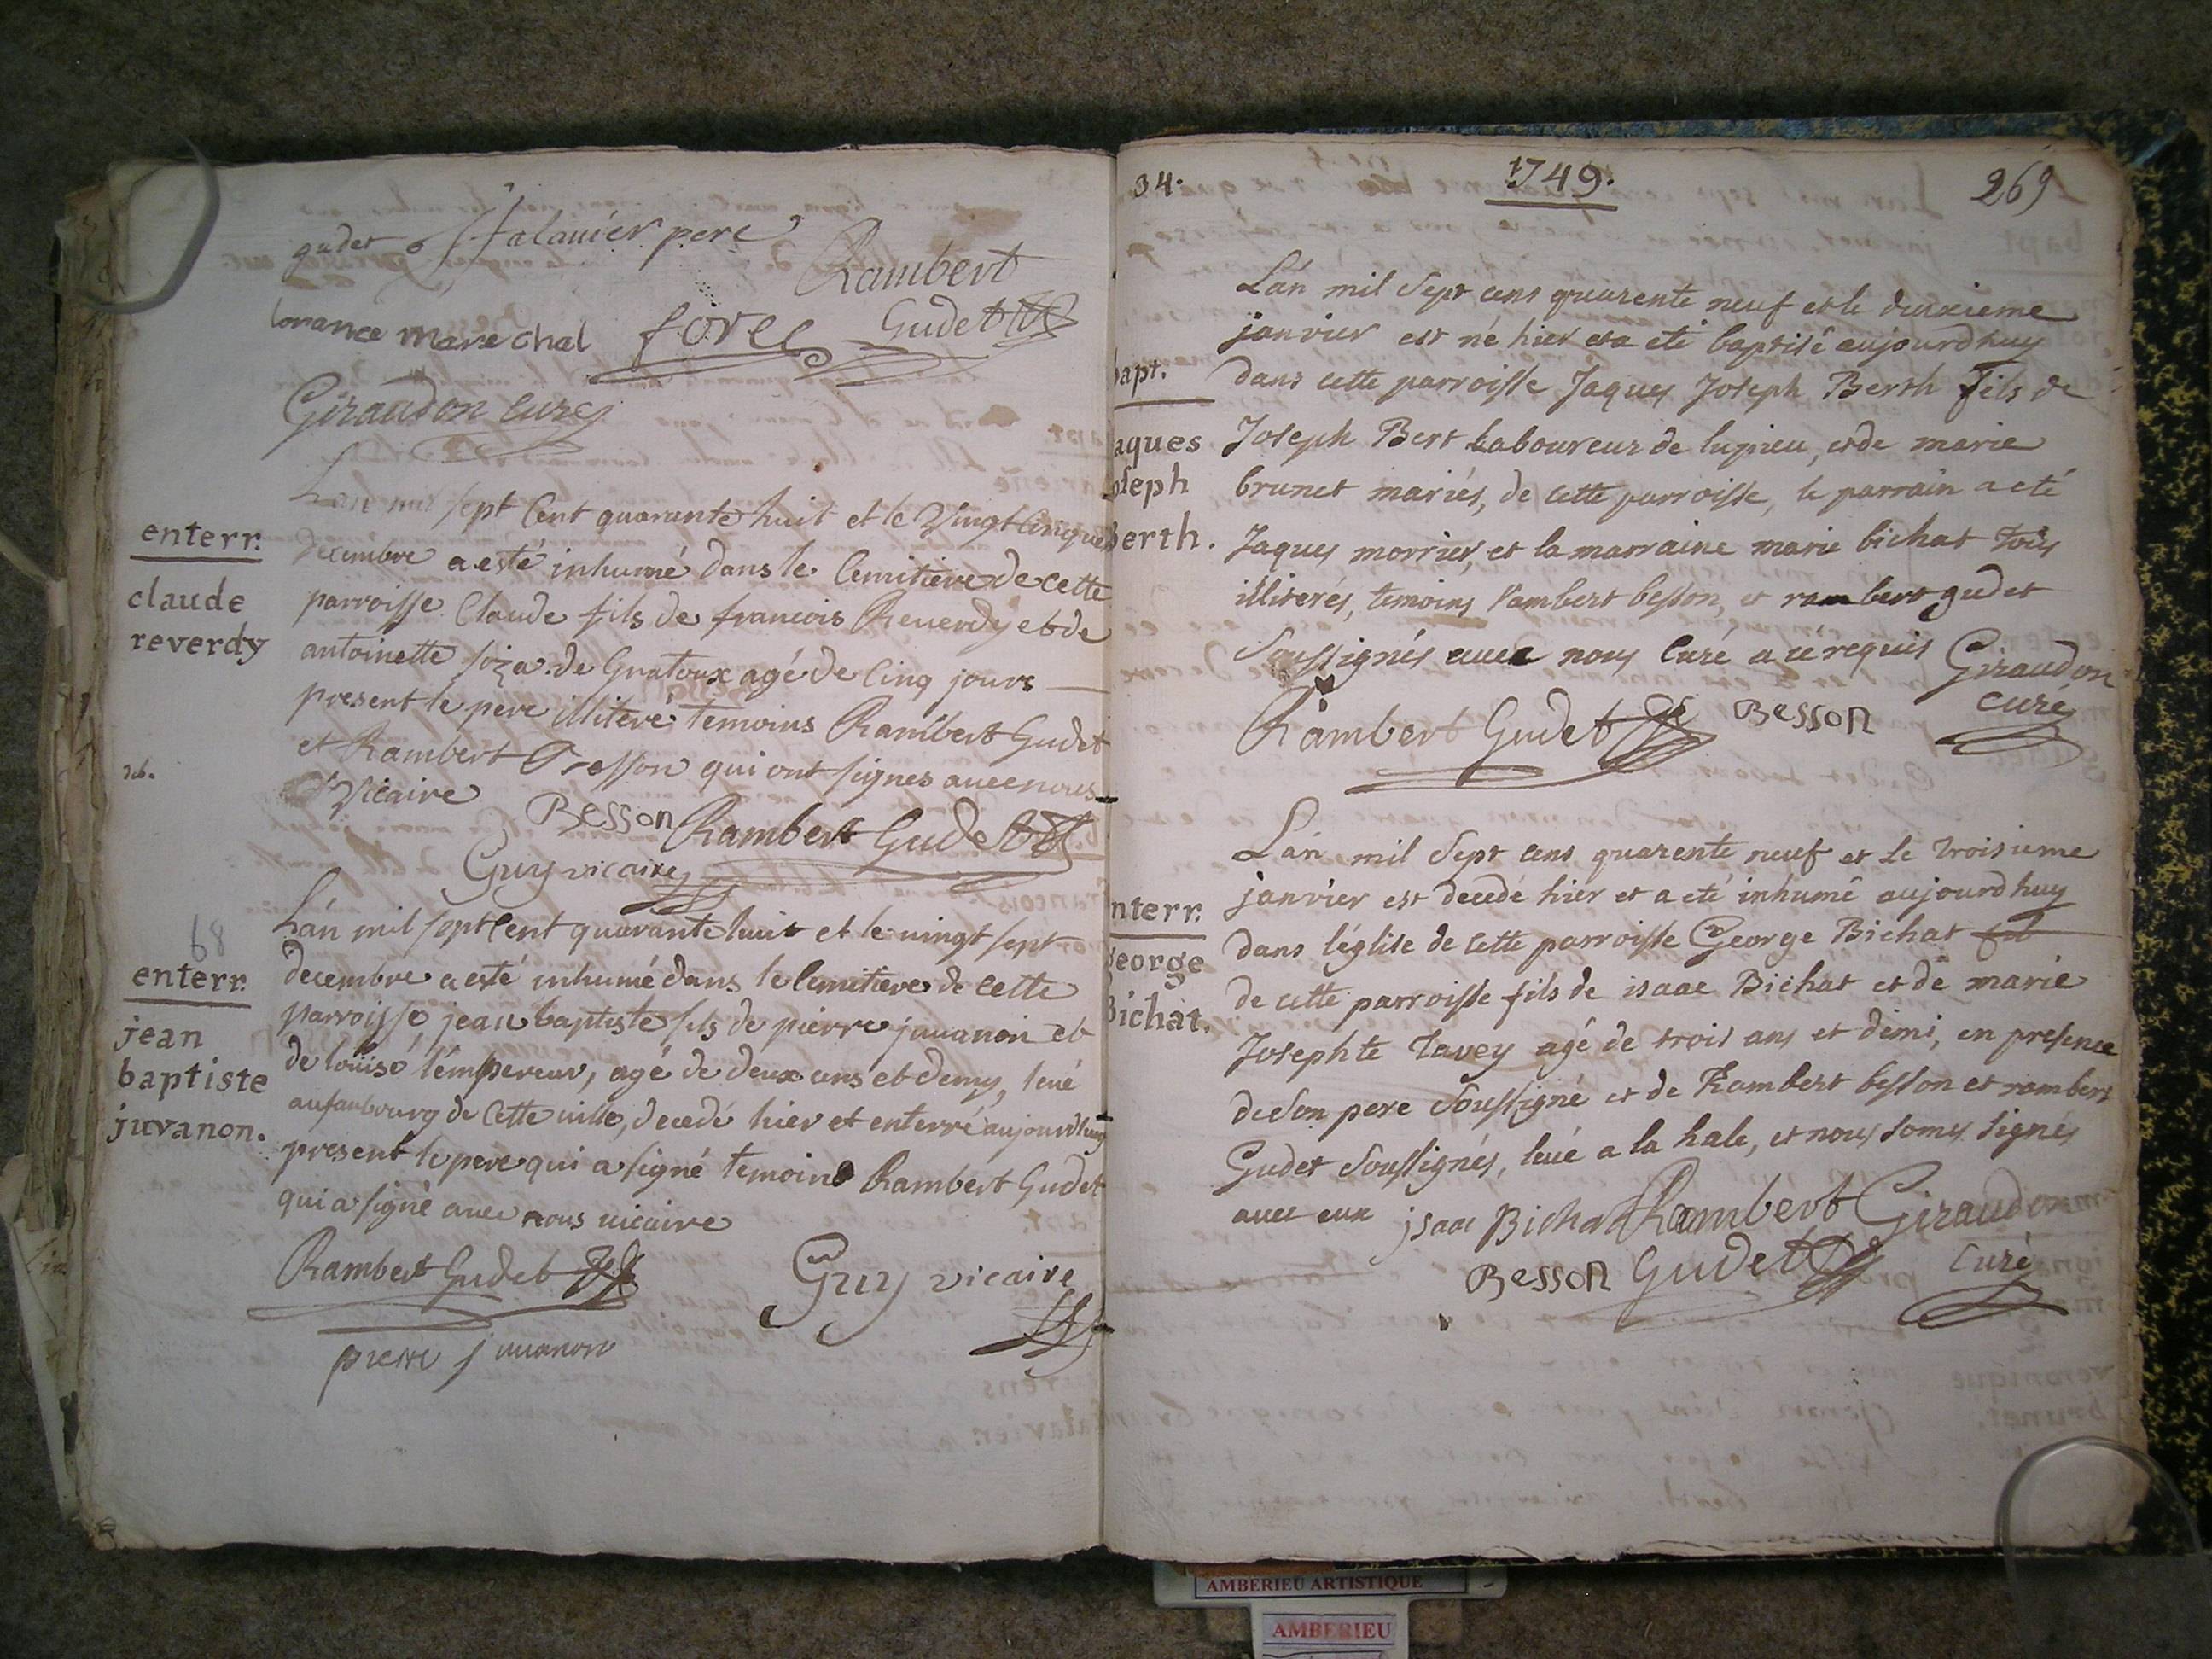 gudet
falavier pere
Rambert
lorance marechal forel Gudet
Giraudon curé
L'an mil sept cent quarante huit et le vingt cinquè
enterr.
claude
reverdy
decembre a esté inhumé dans le cemitiere de cette
parroisse Claude fils de francois Reverdy et de
antoinette soza de Gratoux agé de cinq jours
present le pere illiteré temoins Rambert Gudet
et Rambert Besson qui ont signes avec nous
vicaire
Besson Rambert Gudet
Guy vicaire
68
L'an mil sept cent quarante huit et le vingt sept
enterr.
jean
baptiste
juvanon.
decembre a esté inhumé dans le cemitiere de cette
parroisse jean baptiste fils de pierre juvanon et
de loüise l'empereur, agé de deux ans et demy, levé
au faubourg de cette ville, decedé hier et enterré aujourdhuy
present le pere qui a signé temoins Rambert Gudet
qui a signé avec nous vicaire
Rambert Gudet Guy vicaire
pierre juvanon
34. 1749. 269
L'an mil Sept cens quarente neuf et le deuxieme
janvier est né hier et a eté baptisé aujourdhuy
bapt.
dans cette parroisse Jaques Joseph Berth fils de
aques
oseph
Berth.
Joseph Bert Laboureur de lupieu, et de marie
brunet mariés, de cette parroisse, le parrain a eté
Jaques morrier, et la marraine marie bichat tous
illiterés, temoins rambert besson, et rambert gudet
Soussignés avec nous Curé a ce requis Giraudon
curé
Rambert Gudet Besson
L'an mil Sept cens quarente neuf et Le troisieme
janvier est decedé hier et a eté inhumé aujourdhuy
nterr.
George
Bichat.
dans l'église de cette parroisse George Bichat fil
de cette parroisse fils de isaac Bichat et de marie
Josephte Tavey agé de trois ans et demi, en presence
de Son pere Soussigné et de Rambert besson et rambert
Gudet Soussignés, levé a la hale, et nous somes signés
avec eux isaac Bichat Rambert Giraudon
Besson Gudet Curé
AMBERIEU ARTISTIQUE
AMBERIEU